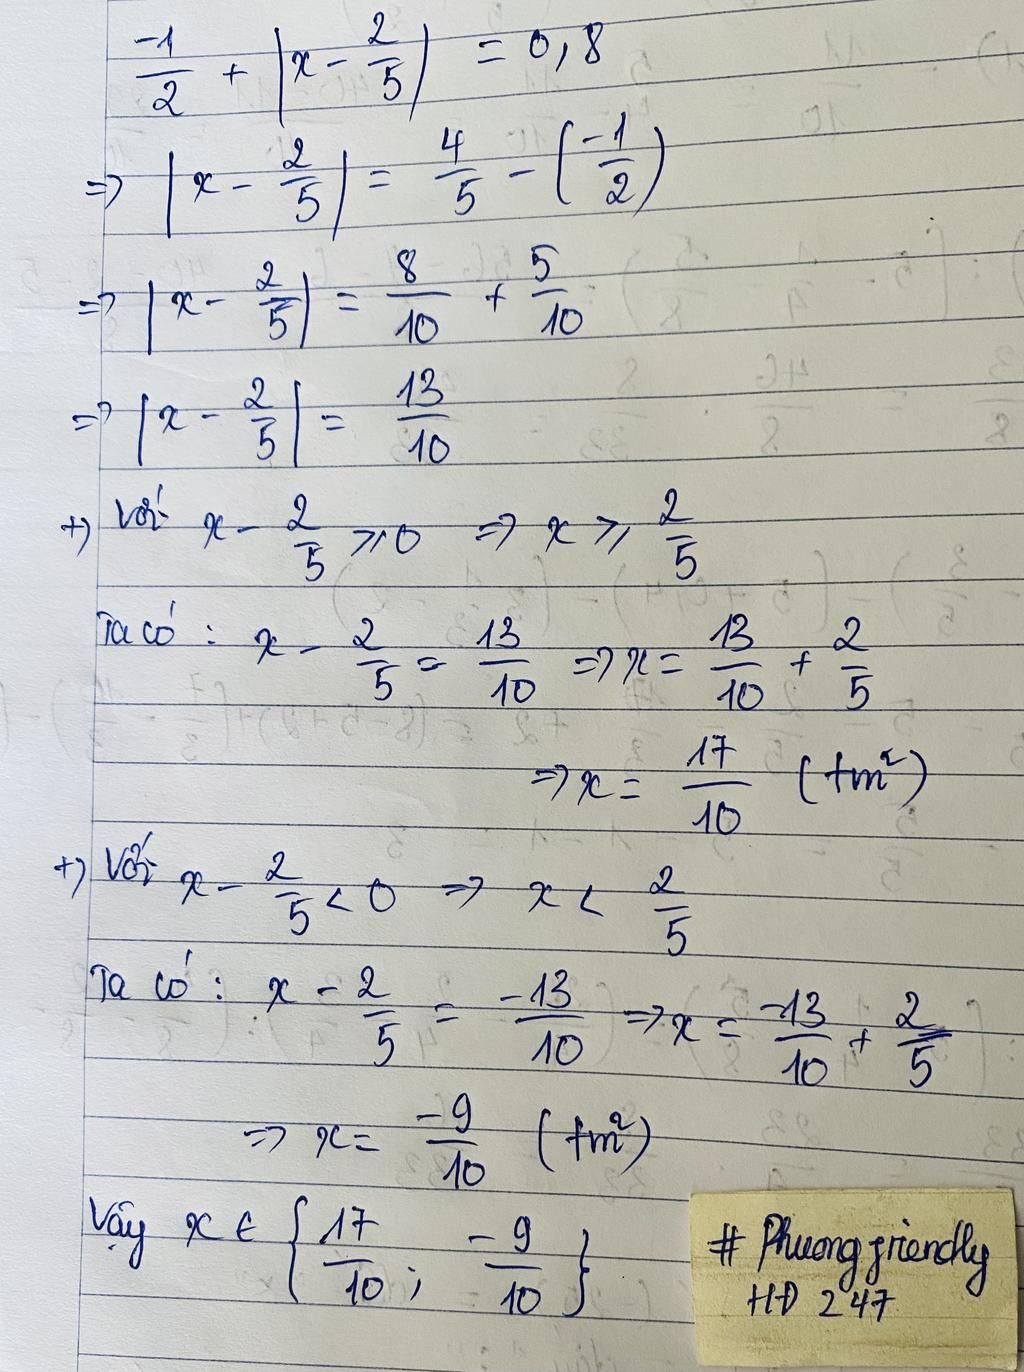 -1/2 + |x - 2/5| = 0,8
=> |x - 2/5| = 4/5 - (-1/2)
=> |x - 2/5| = 8/10 + 5/10
=> |x - 2/5| = 13/10
+) Với x - 2/5 ⩾ 0 => x ⩾ 2/5
Ta có : x - 2/5 = 13/10 => x = 13/10 + 2/5
=> x = 17/10 (tm²)
+) Với x - 2/5 < 0 => x < 2/5
Ta có : x - 2/5 = -13/10 => x = -13/10 + 2/5
=> x = -9/10 (tm²)
Vậy x ∈ {17/10 ; -9/10}
# Phuong friendly
HĐ 247